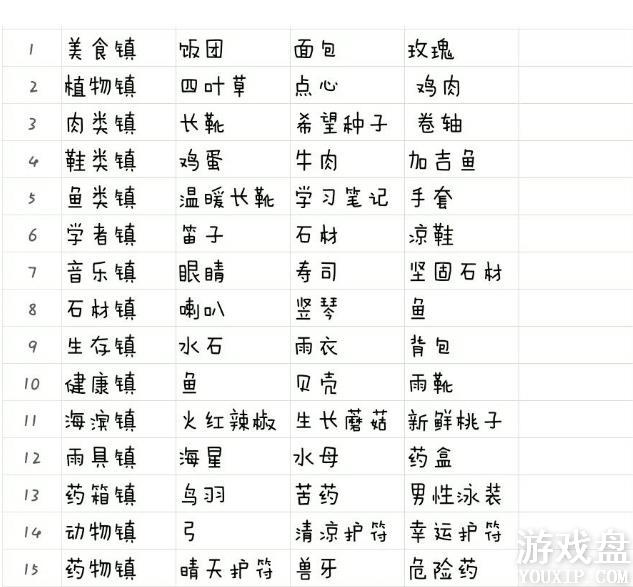 1 美食镇 饭团 面包 玫瑰
2 植物镇 四叶草 点心 鸡肉
3 肉类镇 长靴 希望种子 卷轴
4 鞋类镇 鸡蛋 牛肉 加吉鱼
5 鱼类镇 温暖长靴 学习笔记 手套
6 学者镇 笛子 石材 凉鞋
7 音乐镇 眼睛 寿司 坚固石材
8 石材镇 喇叭 竖琴 鱼
9 生存镇 水石 雨衣 背包
10 健康镇 鱼 贝壳 雨靴
11 海滨镇 火红辣椒 生长蘑菇 新鲜桃子
12 雨具镇 海星 水母 药盒
13 药箱镇 鸟羽 苦药 男性泳装
14 动物镇 弓 清凉护符 幸运护符
15 药物镇 晴天护符 兽牙 危险药
游戏盘
YOUXIP.COM